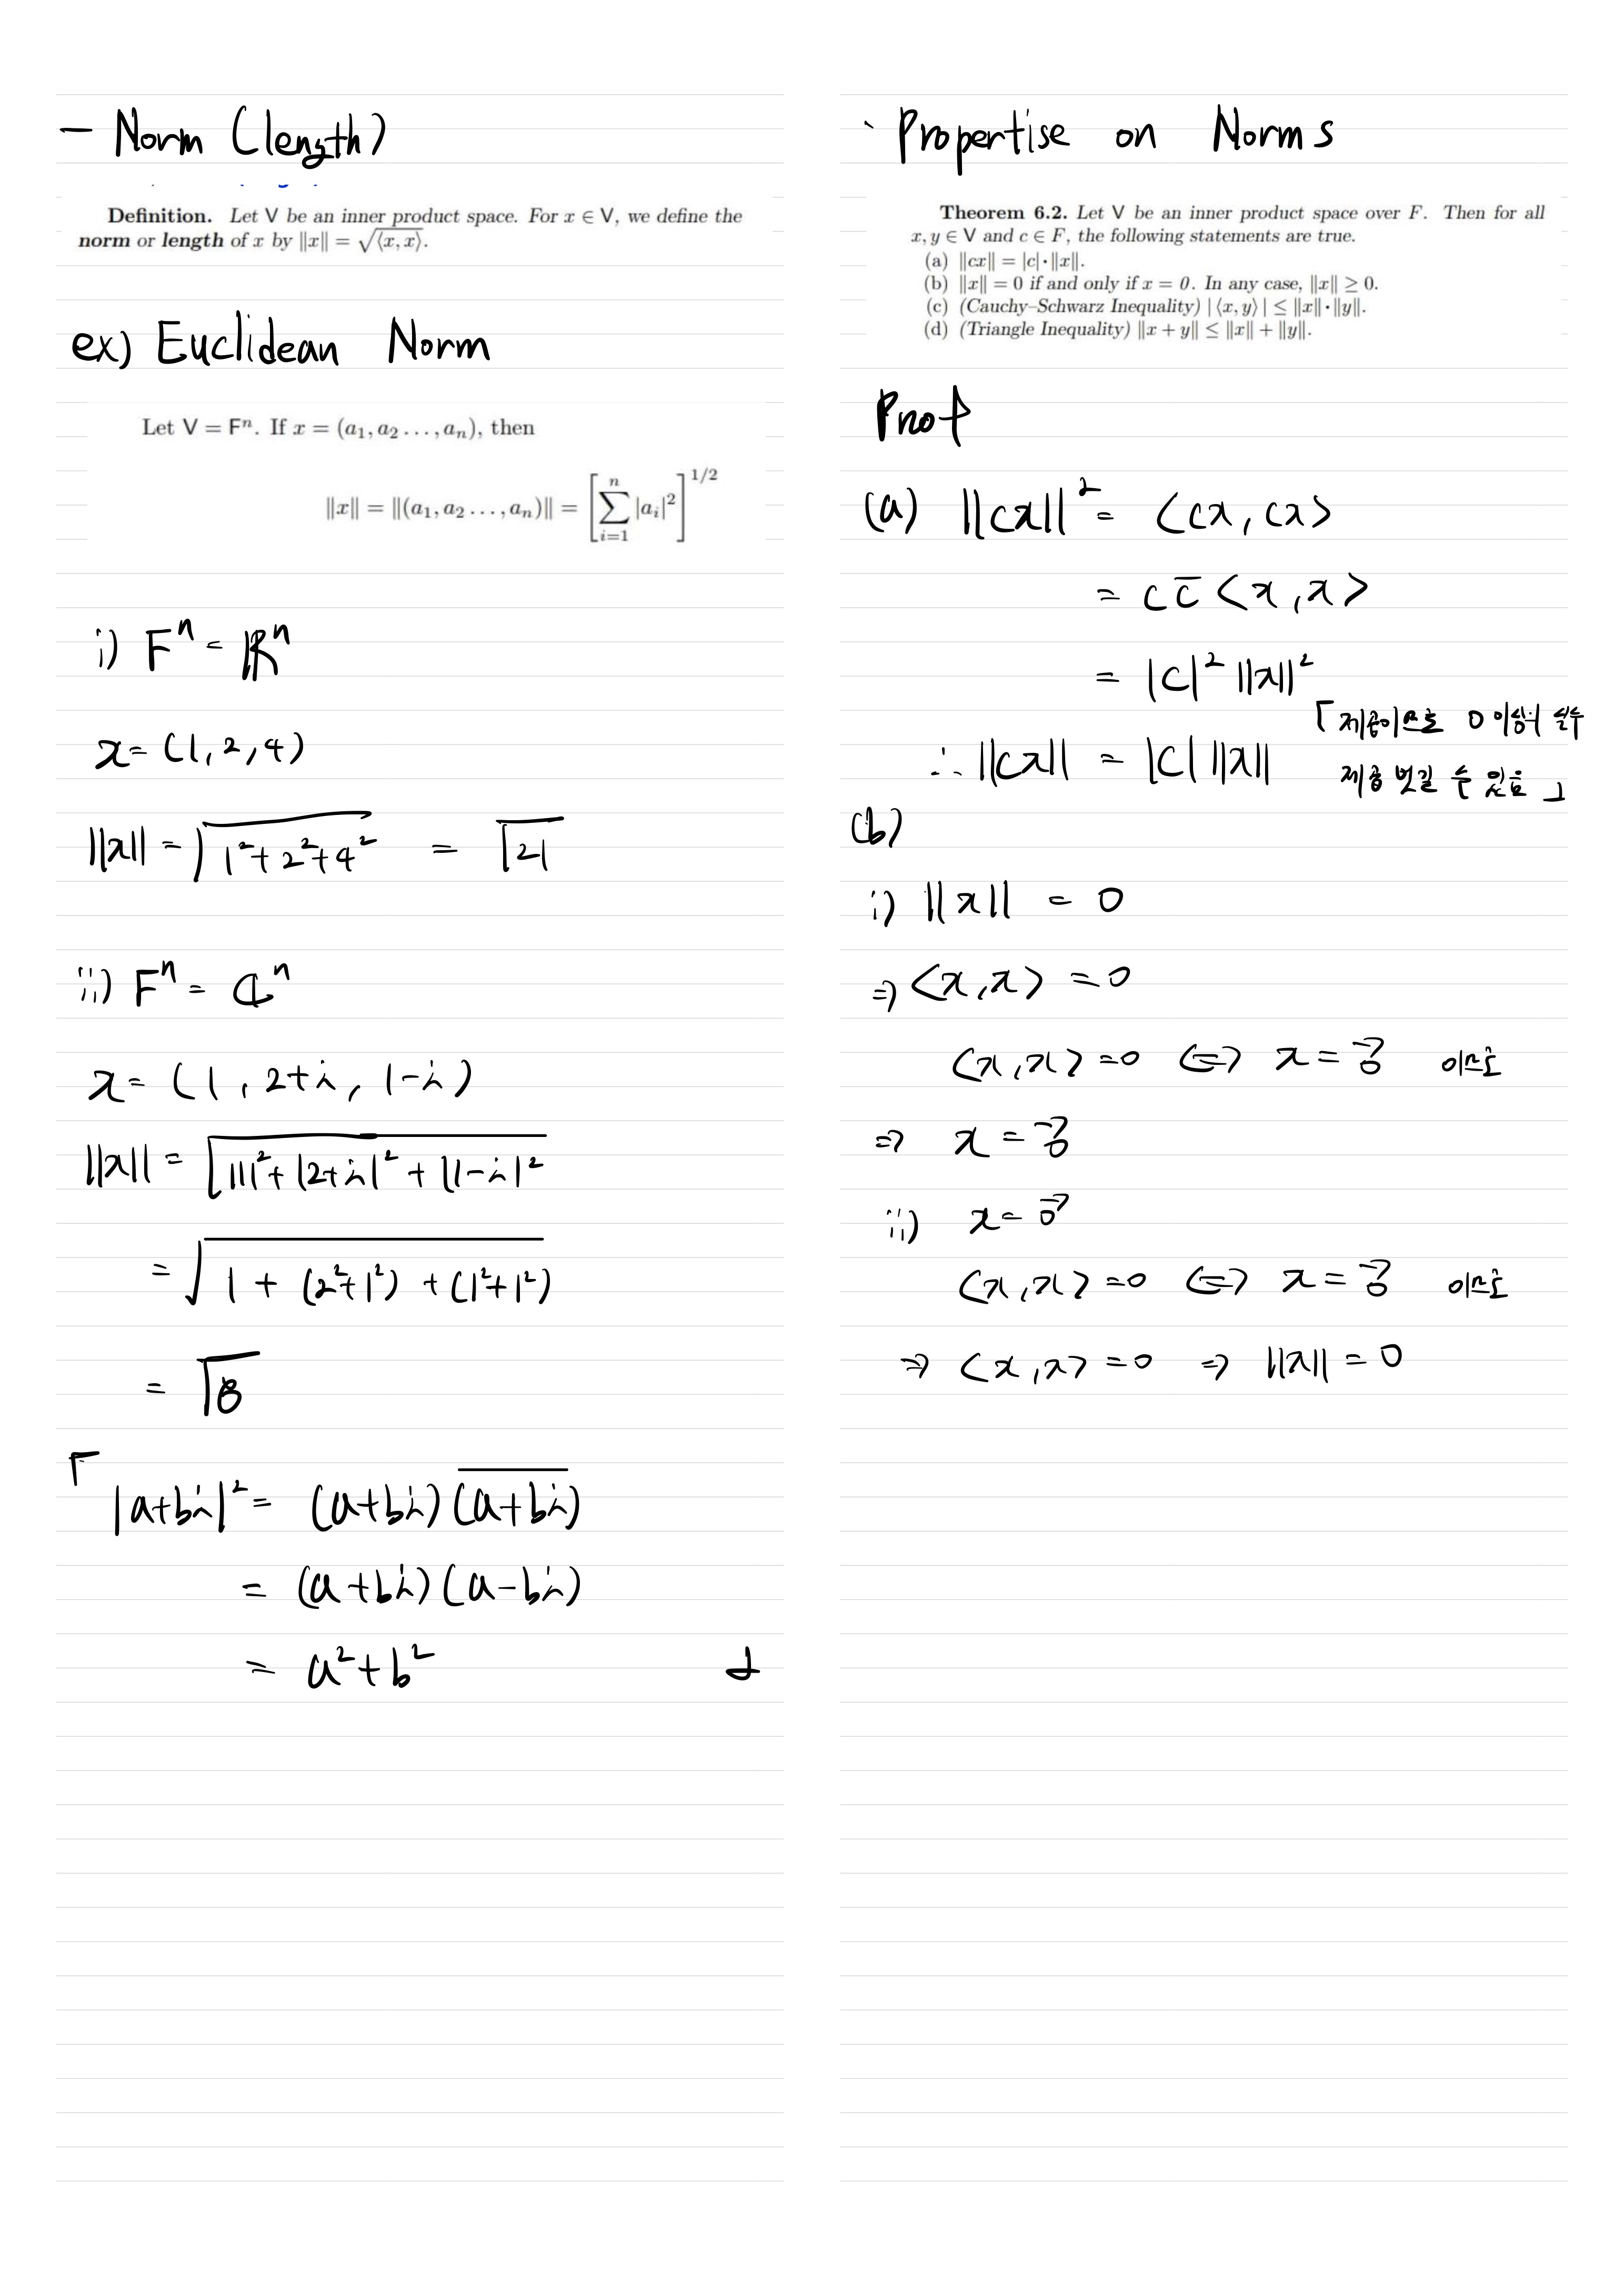 - Norm (length)
Definition. Let V be an inner product space. For x ∈ V, we define the
norm or length of x by ‖x‖ = √⟨x, x⟩.
ex) Euclidean Norm
Let V = Fⁿ. If x = (a₁, a₂ ..., aₙ), then
‖x‖ = ‖(a₁, a₂ ..., aₙ)‖ = [∑ᵢ₌₁ⁿ |aᵢ|²]^1/2
i) Fⁿ = ℝⁿ
x = (1, 2, 4)
‖x‖ = √(1² + 2² + 4²) = √21
ii) Fⁿ = ℂⁿ
x = (1, 2+i, 1-i)
‖x‖ = √(|1|² + |2+i|² + |1-i|²)
= √(1 + (2²+1²) + (1²+1²))
= √8
「 |a+bi|² = (a+bi)\overline{(a+bi)}
= (a+bi)(a-bi)
= a² + b² 」
· Propertise on Norms
Theorem 6.2. Let V be an inner product space over F. Then for all
x, y ∈ V and c ∈ F, the following statements are true.
(a) ‖cx‖ = |c|·‖x‖.
(b) ‖x‖ = 0 if and only if x = 0. In any case, ‖x‖ ≥ 0.
(c) (Cauchy–Schwarz Inequality) |⟨x, y⟩| ≤ ‖x‖·‖y‖.
(d) (Triangle Inequality) ‖x + y‖ ≤ ‖x‖ + ‖y‖.
Proof
(a) ‖cx‖² = <cx, cx>
= c c̄ <x, x>
= |c|² ‖x‖²
「제곱이므로 0 이상의 실수
∴ ‖cx‖ = |c| ‖x‖ 제곱 벗길 수 있음 」
(b)
i) ‖x‖ = 0
⇒ <x, x> = 0
<x, x> = 0 ⇔ x = 0⃗ 이므로
⇒ x = 0⃗
ii) x = 0⃗
<x, x> = 0 ⇔ x = 0⃗ 이므로
⇒ <x, x> = 0 ⇒ ‖x‖ = 0